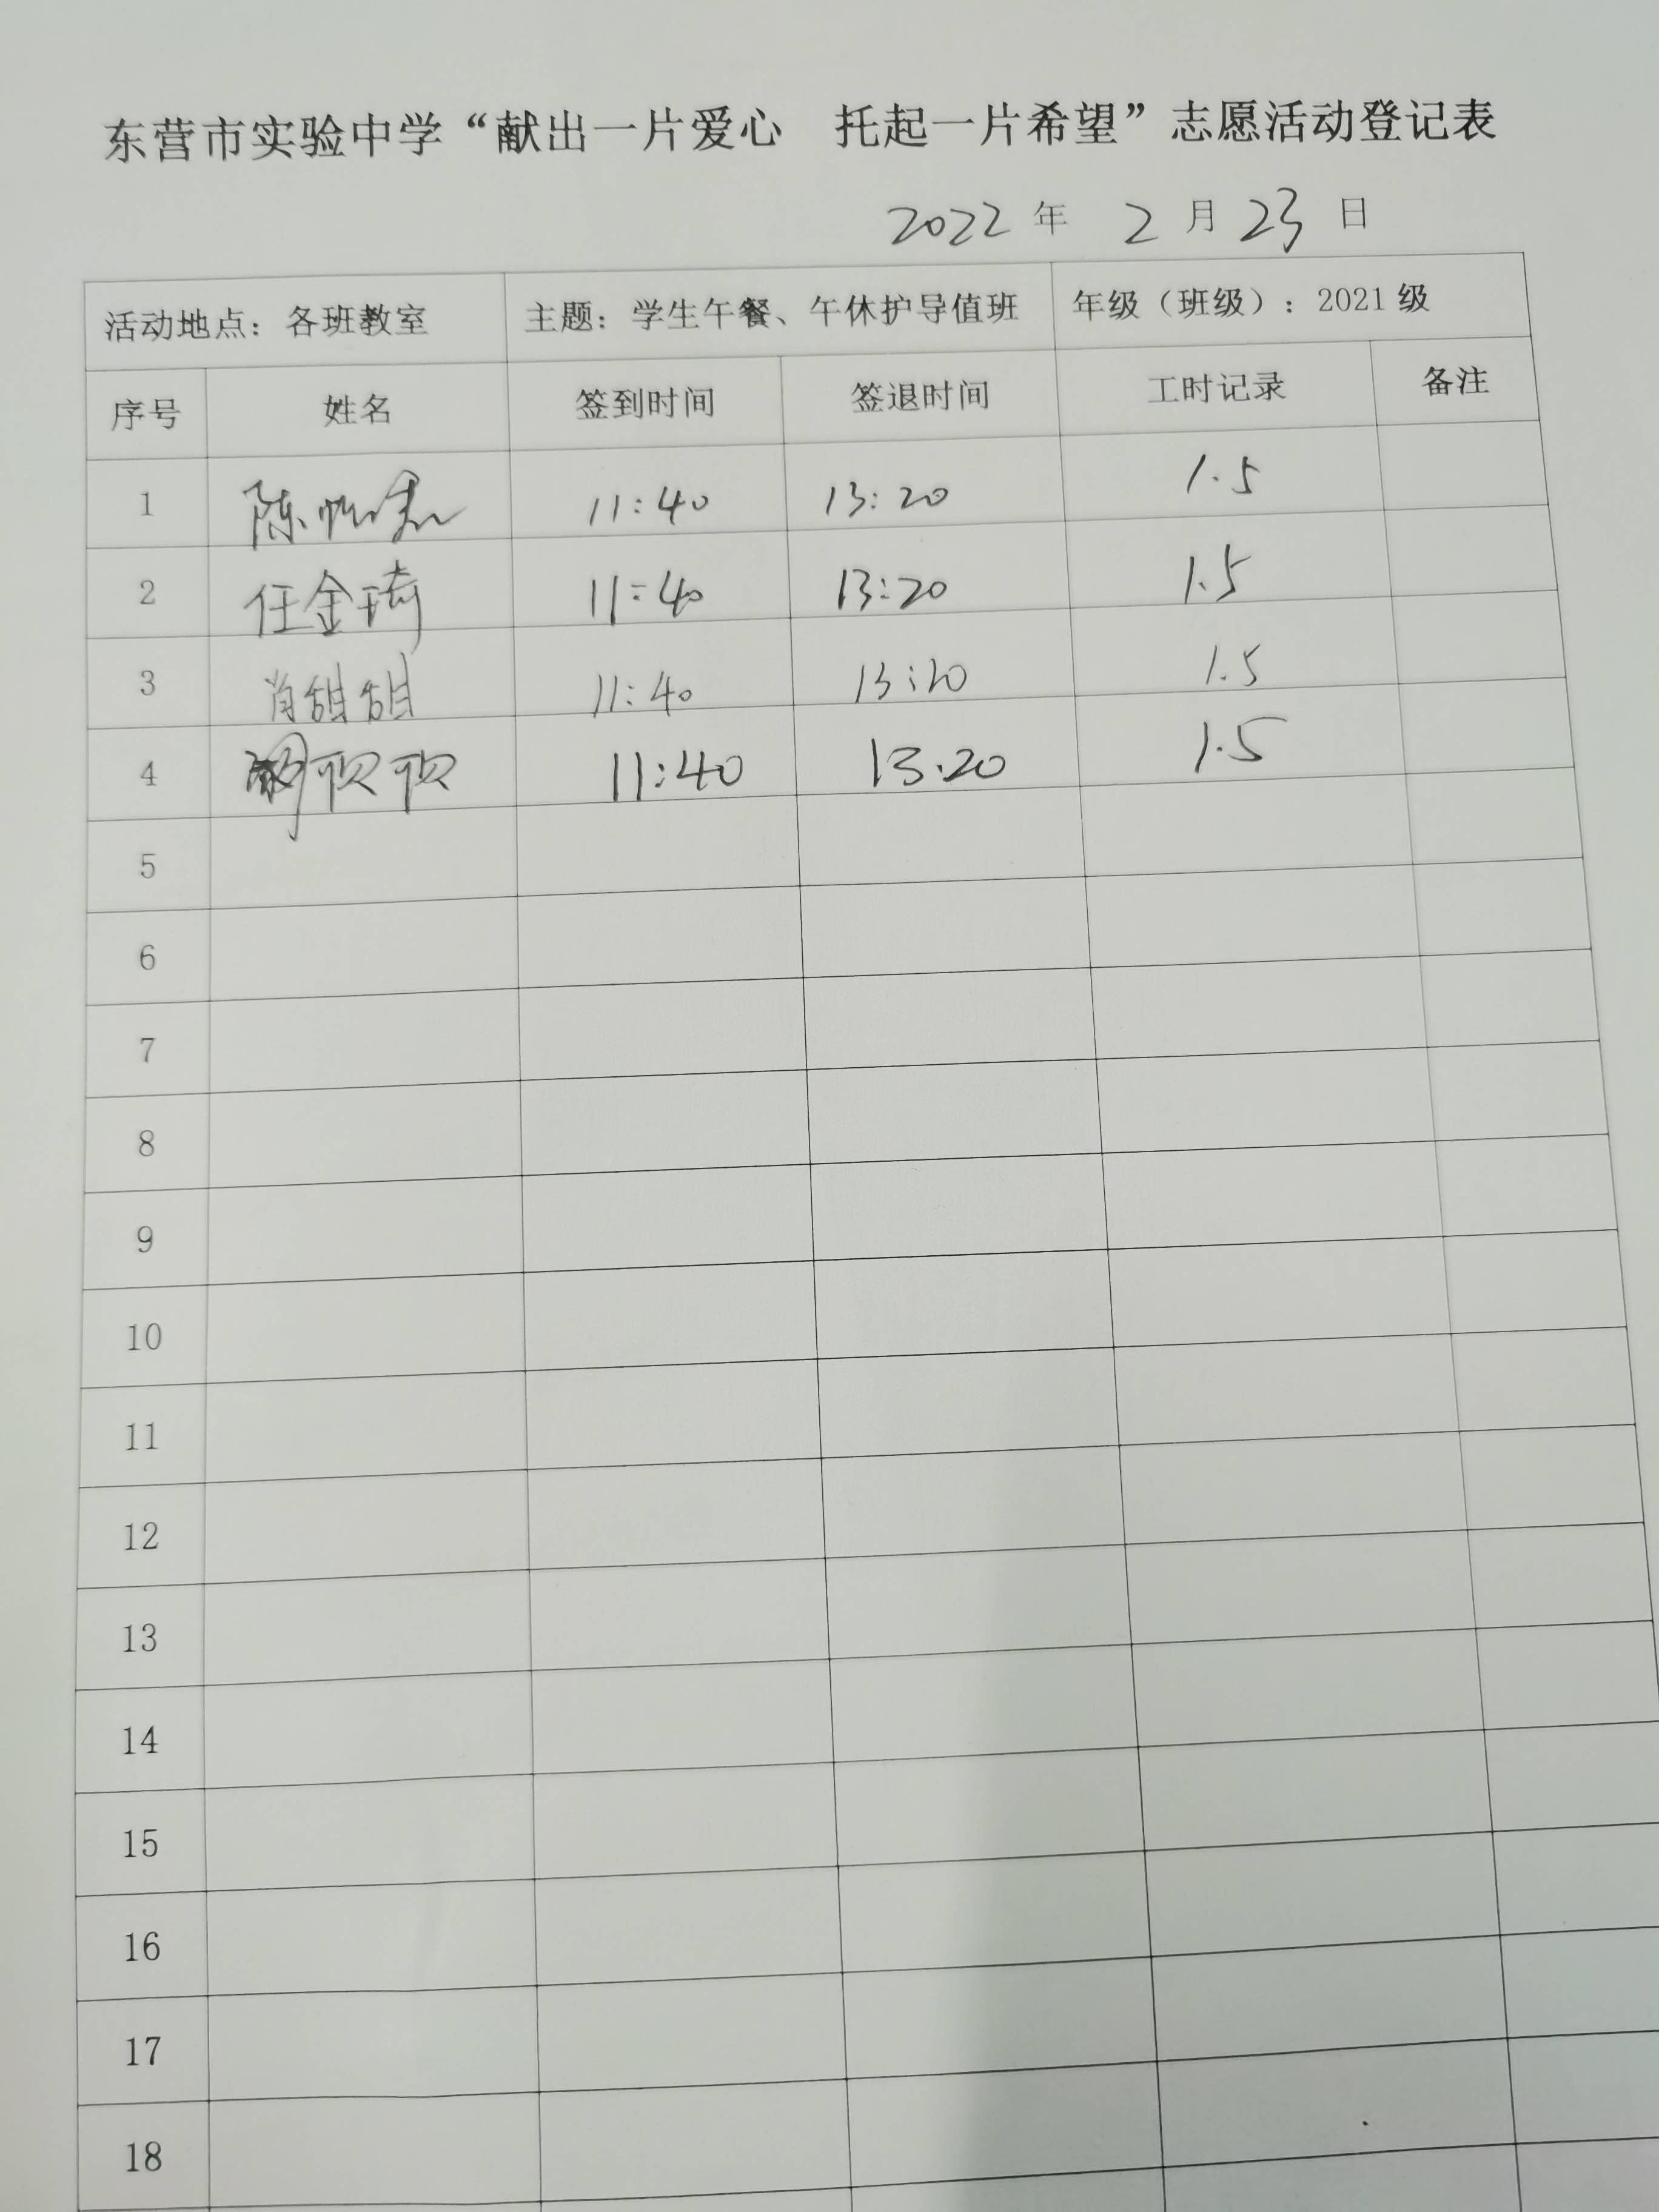 东营市实验中学“献出一片爱心 托起一片希望”志愿活动登记表
2022 年 2 月 23 日
活动地点：各班教室 主题：学生午餐、午休护导值班 年级（班级）：2021 级
序号 姓名 签到时间 签退时间 工时记录 备注
1 陈 11:40 13:20 1.5
2 任金琦 11:40 13:20 1.5
3 肖甜甜 11:40 13:20 1.5
4 11:40 13.20 1.5
5
6
7
8
9
10
11
12
13
14
15
16
17
18